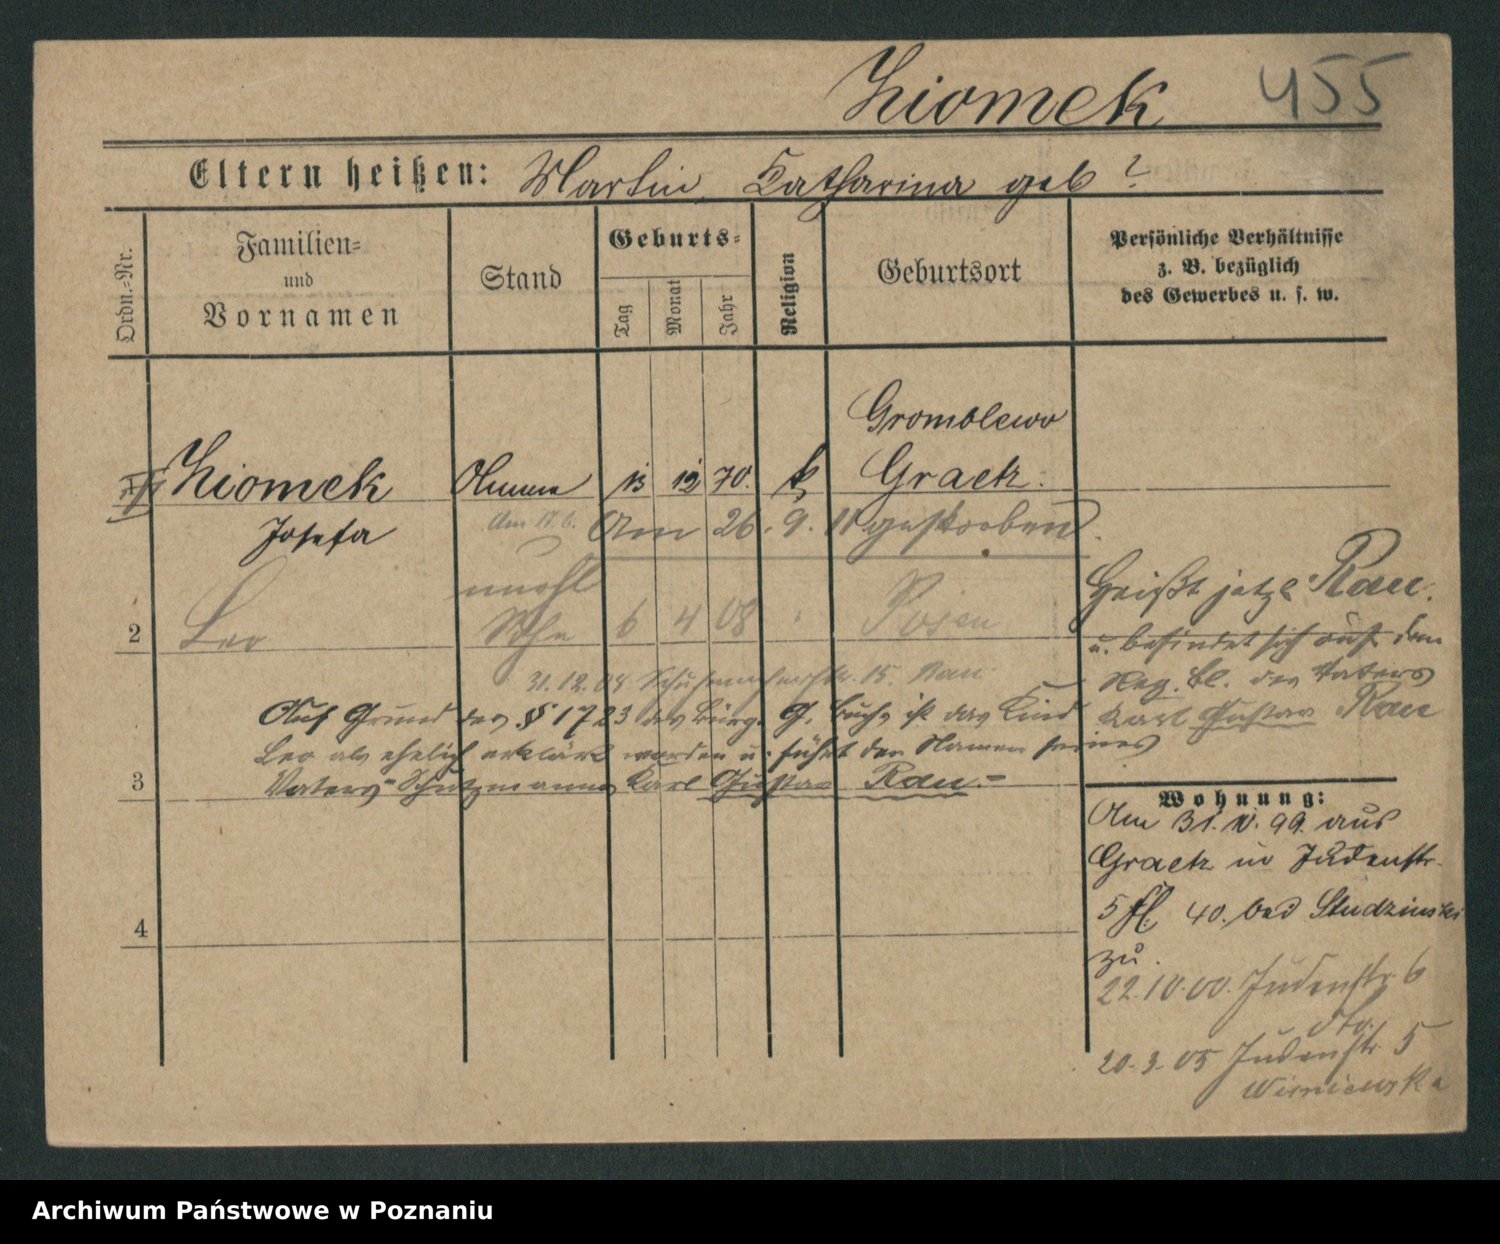 Ziomek 455
Eltern heißen: Martin, Katharina geb?
Ordn.-Nr.
Familien-
und
Vornamen
Stand
Geburts-
Tag
Monat
Jahr
Religion
Geburtsort
Persönliche Verhältnisse
z. B. bezüglich
des Gewerbes u. s. w.
Gromblewo
Ziomek Amme 13 12 70. k Graetz.
Josefa
Am 26. 9. 11 gestorben.
unehl
2 Leo Sohn 6 4 08 Posen
Heißt jetzt Rau.
u. befindet sich auf dem
Reg. Bl. des Vaters
Karl Gustav Rau
31.12.08 15. Rau
Auf Grund des § 1723 des Bürg. G. Buchs ist das Kind
Leo als ehelich erklärt worden u. führt den Namen seines
3 Vaters Schutzmanns Karl Gustav Rau.-
4
Wohnung:
Am 31. 10. 99. aus
Graetz in Judenstr.
5 fl. 40. bei Studzinski
zu.
22.10.00. Judenstr. 6
20.3.05 Judenstr. 5
Wisniewska
Archiwum Państwowe w Poznaniu